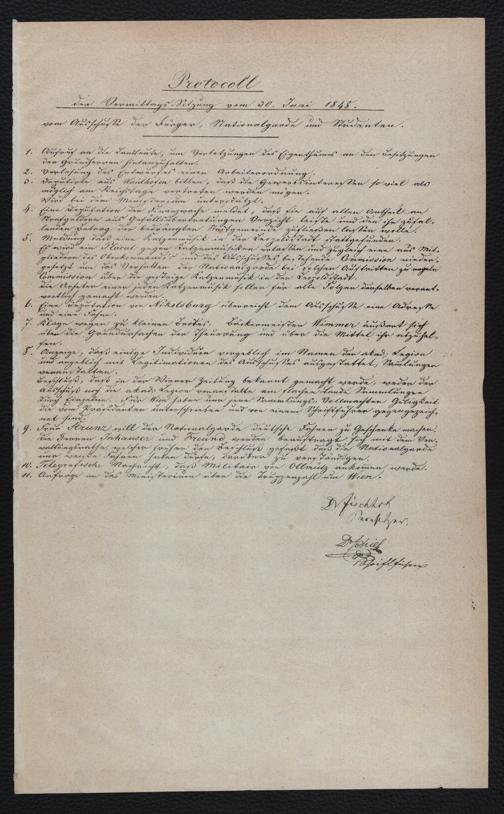 Protocoll
der Vormittags-Sitzung vom 30. Juni 1848.
vom Ausschuße der Bürger, Nationalgarde und Studenten.
1. Aufruf an die Landleute, um Verletzungen des Eigenthums an den Besitzungen
der Grundherren hintanzuhalten.
2. Vorlesung des Entwurfes einer Arbeiterordnung.
3. Deputirte aus bitten, daß die Gewerbsinteressen so viel als
möglich am Reichstage vertreten werden mögen.
Wird bei dem Ministerium unterstützt.
4. Eine Deputation der meldet, daß sie auf allen Antheil an
Verzicht leiste und den ihr zufal-
lenden Betrag der bedrängten zufließen lassen wolle.
5. Meldung daß eine Katzenmusik in der Leopoldstadt stattgefunden.
Es wird ein Placat gegen Katzenmusiken erlassen und zugleich eine aus Mit-
gliedern des Oberkommandos und des Ausschußes bestehende Commission nieder-
gesetzt um das Verhalten der Nationalgarde bei solchen Auftritten zu regeln
Commission über der gestrige Katzenmusik in der Leopoldstadt.
die Arheber einer jeden Katzenmusik sollen für alle Folgen derselben verant-
wortlich gemacht werden.
6. Eine Deputation von Nikolsburg überreicht dem Ausschuße eine Adresse
und eine Fahne.
7. Klage wegen zu kleinen Brotes. Bäckermeister Wimmer äußert sich
über die Grundursachen der Theuerung und über die Mittel ihr abzuhel-
fen.
8. Anzeige, daß einige Individuen vorgeblich im Namen der akad. Legion
und angeblich mit Legitimationen des Ausschußes ausgestattet, Sammlungen
veranstalten.
Beschluß, daß in der Wiener Zeitung bekannt gemacht werde, weder der
Ausschuß noch die akad. Legion veranstalte am flachen Lande Sammlungen
durch Einzelne. Für Wien haben nur jene Sammlungs-Vollmachten Giltigkeit
die vom Präsidenten unterschrieben und von einem Schriftführer gegengezeich-
net sind.
9. Frau will der Nationalgarde deutsche Fahnen zu Geschenke machen.
die Herren und Freund werden beauftragt sich mit dem Ver-
waltungsrathe, welcher früher den Beschluß gefaßt daß die Nationalgarde
nur weiße Fahnen haben dürfe, darüber zu verständigen.
10. Telegrafische Nachricht, daß Militair von Ollmütz ankommen werde.
11. Anfrage an das Ministerium über die Truppenzahl um Wien.
Dr Fischhof
Vorsitzer.
Schriftführer